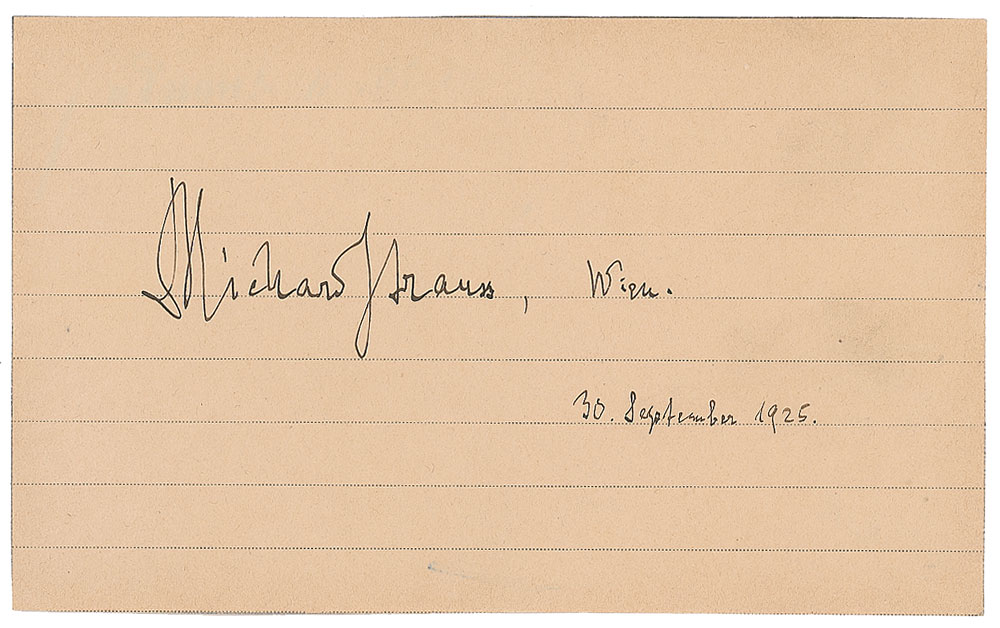 Richard Strauss, Wien.
30. September 1925.